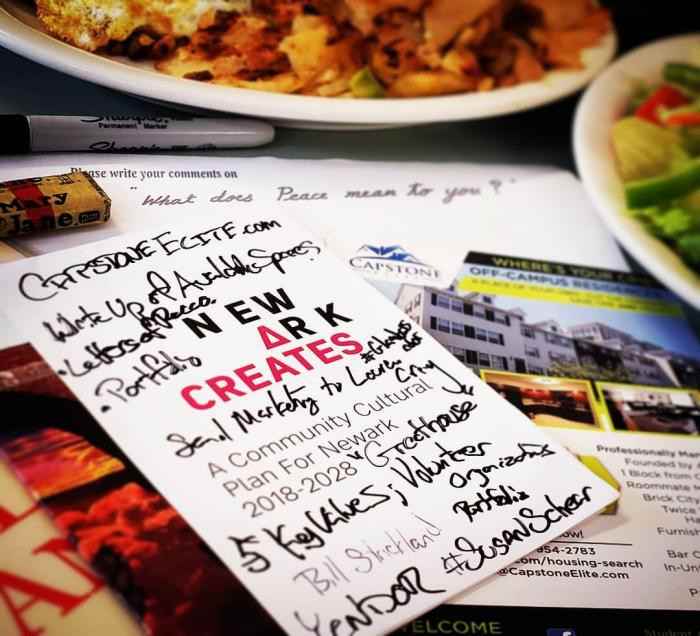 Sharpie
Permanent Marker
Please write your comments on
"What does Peace mean to you?"
Mary
Jane
CAPSTONEELITE.com
Write Up of Available Spaces
• Letters of Recco
• Portfolio
NEW
ARK
CREATES
Send Marketing to
A Community Cultural
Plan For Newark
2018-2028
Greathouse
5 Key Values; Volunteer
Organizations
Portfolio
Bill Strickland
#SusanScherr
VENDOR
CAPSTONE
WHERE'S YOUR
OFF-CAMPUS RESIDENCES
Professionally
Founded by
1 Block from
Roommate
Brick City
Twice
Furnish
Bar
In-Un
now!
954-2783
.com/housing-search
@CapstoneElite.com
WELCOME